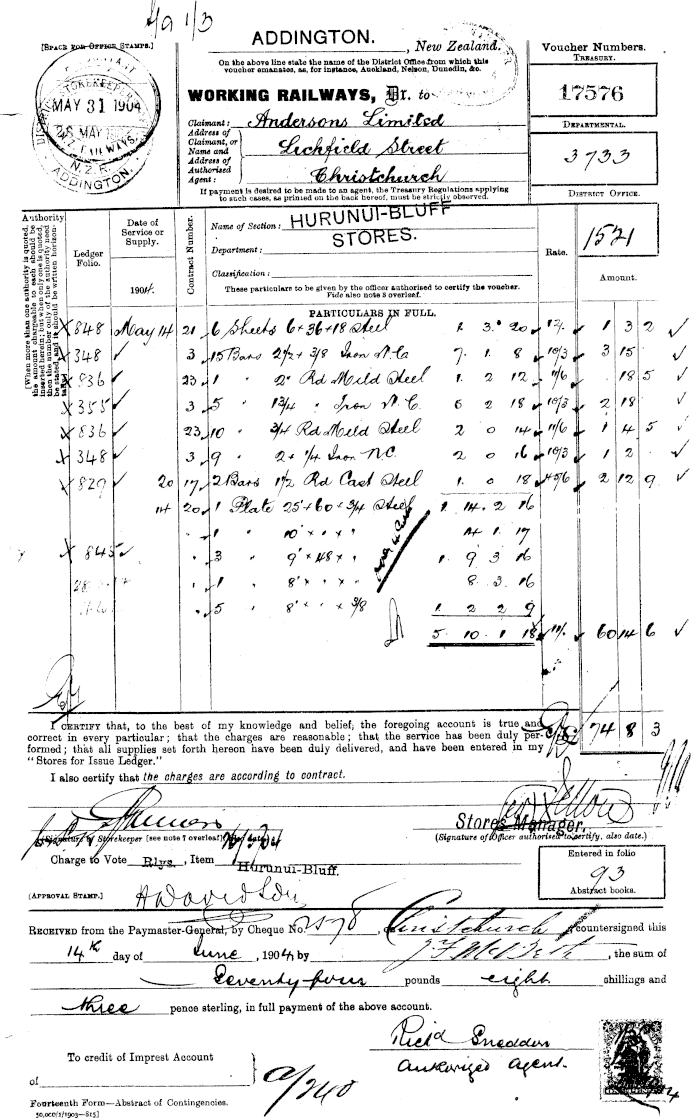 a/a 1/3
[SPACE FOR OFFICE STAMPS.]
ADDINGTON.
, New Zealand.
On the above line state the name of the District Office from which this
voucher emanates, as, for instance, Auckland, Nelson, Dunedin, &c.
Voucher Numbers.
TREASURY.
17576
DEPARTMENTAL.
3733
DISTRICT OFFICE.
1521
STOREKEEPER
MAY 31 1904
28 MAY
RAILWAYS
N.Z.R.
ADDINGTON.
WORKING RAILWAYS, Dr. to
Claimant: Andersons Limited
Address of
Claimant, or
Name and
Address of
Authorised
Agent:
Lichfield Street
Christchurch
If payment is desired to be made to an agent, the Treasury Regulations applying
to such cases, as printed on the back hereof, must be strictly observed.
Authority
[When more than one authority is quoted, the amount chargeable to each should be inserted herein; but when only one is quoted, then the number only of the authority need be stated, and it should be written horizontally.]
Ledger
Folio.
Date of
Service or
Supply.
1904.
Contract Number.
Name of Section: HURUNUI-BLUFF
Department: STORES.
Classification:
These particulars to be given by the officer authorised to certify the voucher.
Vide also note 8 overleaf.
Rate.
Amount.
PARTICULARS IN FULL.
848 May 14 21 6 Sheets 6 × 36 × 18 Steel 1. 3. 20 17/. 1 3 2
348 3 15 Bars 2½ × 3/8 Iron N.C. 7. 1. 8 10/3 3 15
836 23 1 " 2" Rd Mild Steel 1 2 12 11/6 18 5
355 3 5 " 1¾ " Iron N.C. 6 2 18 10/3 2 18
836 23 10 " ¾ Rd Mild Steel 2 0 14 11/6 1 4 5
348 3 9 " 2 × ¼ Iron N.C. 2 0 16 10/3 1 2
829 20 17 2 Bars 1½ Rd Cast Steel 1. 0 18 45/6 2 12 9
14 20 1 Plate 25' × 60 × ¾ Steel 1. 14. 2 16
" 1 " 10' × " × " 14 1. 17
845 " 3 " 9' × 48 × " 1. 9 3 16
" 1 " 8' × " × " 8 3. 16
" 5 " 8' × " × 3/8 1 2 2 9
5 10 1 18 11/. 60 14 6
74 8 3
I CERTIFY that, to the best of my knowledge and belief, the foregoing account is true and
correct in every particular; that the charges are reasonable; that the service has been duly per-
formed; that all supplies set forth hereon have been duly delivered, and have been entered in my
"Stores for Issue Ledger."
I also certify that the charges are according to contract.
Stores Manager.
(Signature of Storekeeper [see note 7 overleaf]
(Signature of Officer authorised to certify, also date.)
Charge to Vote Rlys. , Item Hurunui-Bluff.
Entered in folio
93
Abstract books.
(APPROVAL STAMP.)
RECEIVED from the Paymaster-General, by Cheque No. 2578 , Christchurch , countersigned this
14th day of June , 1904, by , the sum of
Seventy four pounds eight shillings and
three pence sterling, in full payment of the above account.
Sneddon
Authorized agent.
To credit of Imprest Account
of
a/240
Fourteenth Form—Abstract of Contingencies.
50,000/1/1903—815]